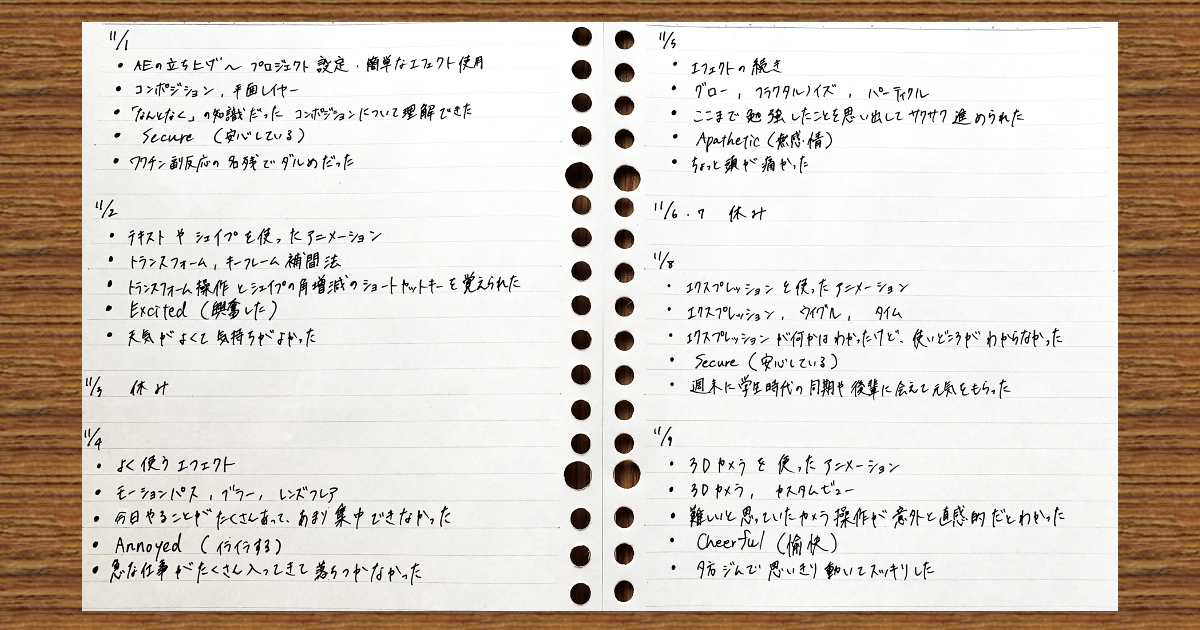 11/1
• AEの立ち上げ〜プロジェクト設定・簡単なエフェクト使用
• コンポジション, 平面レイヤー
• 「なんとなく」の知識だった コンポジションについて理解できた
• Secure (安心している)
• ワクチン副反応の名残でダルめだった
11/2
• テキストやシェイプを使ったアニメーション
• トランスフォーム, キーフレーム補間法
• トランスフォーム操作とシェイプの角増減のショートカットキーを覚えられた
• Excited (興奮した)
• 天気がよくて気持ちがよかった
11/3 休み
11/4
• よく使うエフェクト
• モーションパス, ブラー, レンズフレア
• 今日やることがたくさんあって、あまり集中できなかった
• Annoyed (イライラする)
• 急な仕事がたくさん入ってきて落ちつかなかった
11/5
• エフェクトの続き
• グロー, フラクタルノイズ, パーティクル
• ここまで勉強したことを思い出してサクサク進められた
• Apathetic (無感情)
• ちょっと頭が痛かった
11/6・7 休み
11/8
• エクスプレッションを使ったアニメーション
• エクスプレッション, ウィグル, タイム
• エクスプレッションが何かはわかったけど、使いどころがわからなかった
• Secure (安心している)
• 週末に学生時代の同期や後輩に会えて元気をもらった
11/9
• 3Dカメラを使ったアニメーション
• 3Dカメラ, カスタムビュー
• 難しいと思っていたカメラ操作が意外と直感的だとわかった
• Cheerful (愉快)
• 夕方ジムで思いきり動いてスッキリした